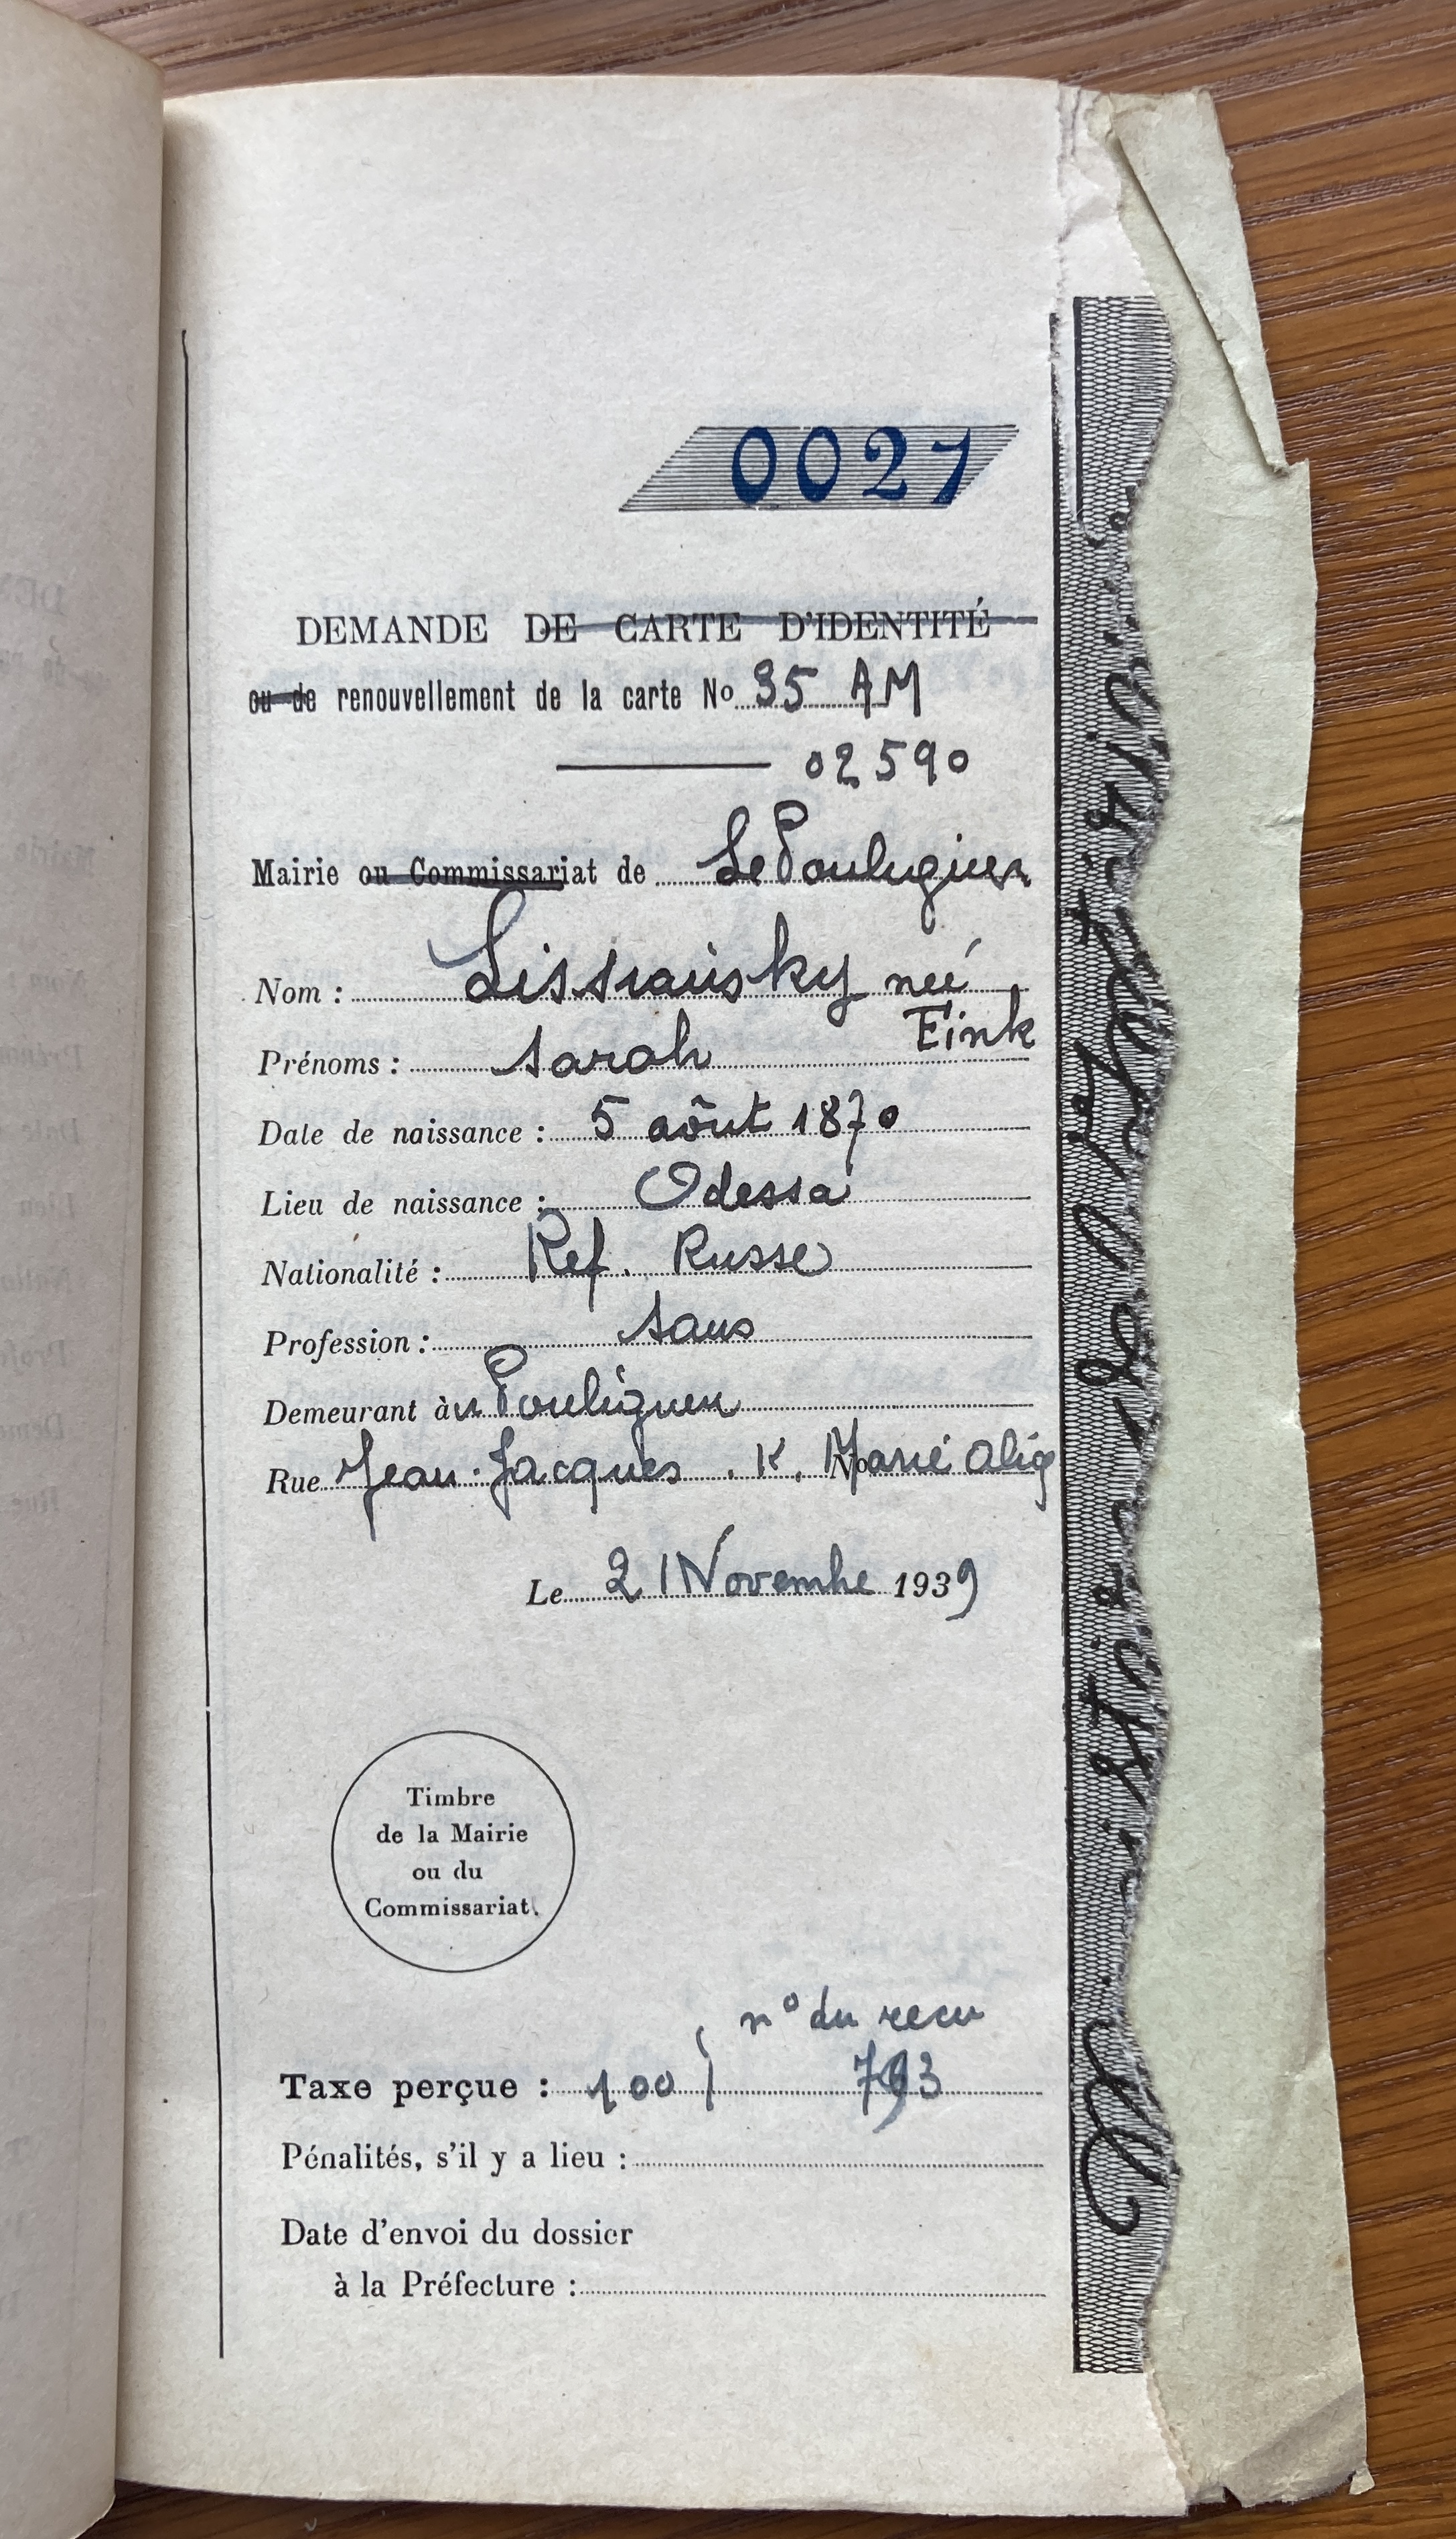 0027
DEMANDE DE CARTE D'IDENTITÉ
ou de renouvellement de la carte No 35 AM
02590
Mairie ou Commissariat de Le Pouliguen
Nom : Lissiansky neé
Fink
Prénoms : Sarah
Date de naissance : 5 aôut 1870
Lieu de naissance : Odessa
Nationalité : Ref. Russe
Profession : Sans
Demeurant à u Pouliguen
Rue Jean-Jacques . K. Marié Alig
Le 21 Novembre 1939
Timbre
de la Mairie
ou du
Commissariat.
n° du recu
Taxe perçue : 100 793
Pénalités, s'il y a lieu :
Date d'envoi du dossier
à la Préfecture :